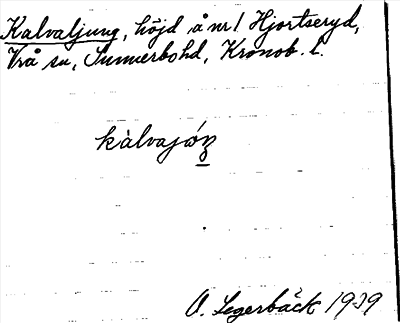 Kalvaljung, höjd å nr 1 Hjortseryd,
Vrå sn, Sunnerbo hd, Kronob. l.
kàlvajóŋ
O. Segerbäck 1939